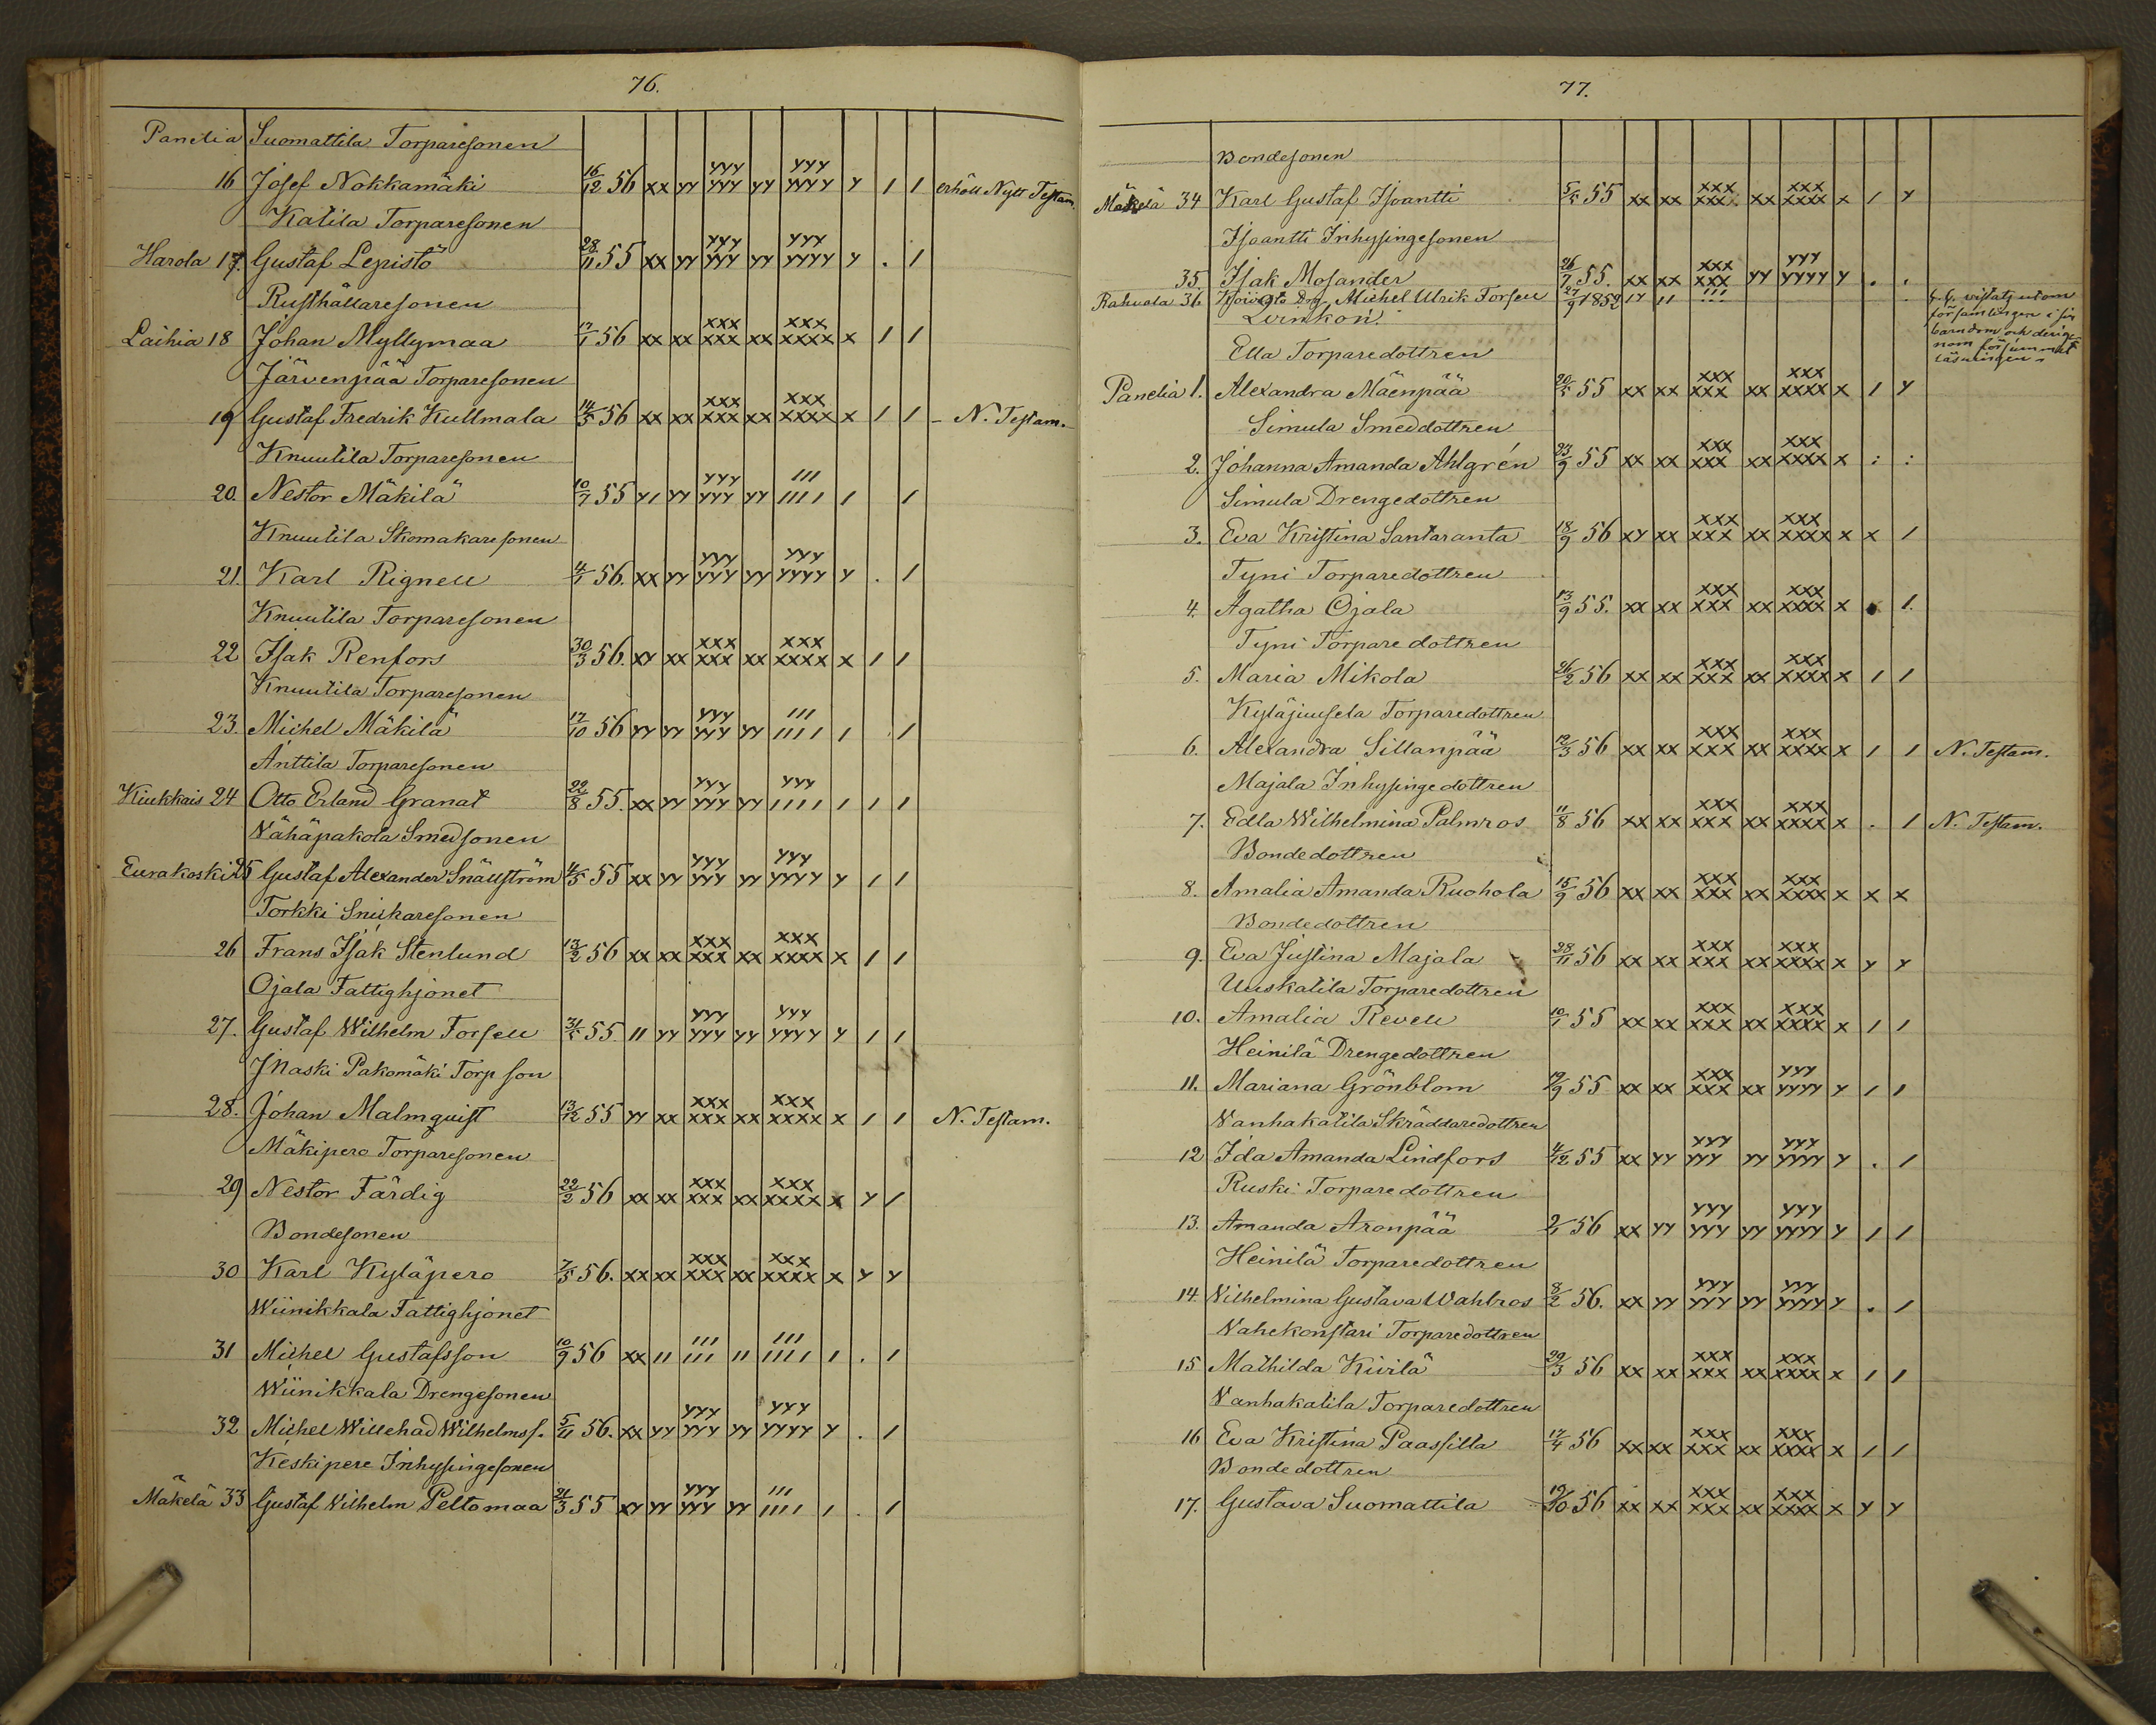 76.
Panelia Suomattila Torparesonen
16 Josef Nokkamäki 16/12 56 xx yy yyy yyy yy yyy yyyy y / / erhöll Nytt Testam.
Katila Torparesonen
Harola 17. Gustaf Lepistö 28/11 55 xx yy yyy yyy yy yyy yyyy y . /
Rusthållaresonen
Laihia 18 Johan Myllymaa 17/1 56 xx xx xxx xxx xx xxx xxxx x / /
Järvenpää Torparesonen
19 Gustaf Fredrik Kullmala 14/5 56 xx xx xxx xxx xx xxx xxxx x / / - N. Testam.
Knuutila Torparesonen
20. Nestor Mäkilä 10/7 55 y/ yy yyy yyy yy /// //// / /
Knuutila Skomakaresonen
21. Karl Rignell 4/1 56. xx yy yyy yyy yy yyy yyyy y . /
Knuutila Torparesonen
22 Isak Renfors 30/3 56. xy xx xxx xxx xx xxx xxxx x / /
Knuutila Torparesonen
23. Michel Mäkilä 17/10 56 yy yy yyy yyy yy /// //// / . /
Anttila Torparesonen
Kiukkais 24 Otto Erland Granat 22/8 55. xx yy yyy yyy yy yyy //// / / /
Vähäpakola Smedsonen
Eurakoski 25 Gustaf Alexander Snällström 4/5 55 xx yy yyy yyy yy yyy yyyy y / /
Torkki Snickaresonen
26 Frans Isak Stenlund 13/2 56 xx xx xxx xxx xx xxx xxxx x / /
Ojala Fattighjonet
27. Gustaf Wilhelm Forsell 31/5 55 // yy yyy yyy yy yyy yyyy y / /
Pakomäki Torp son
28. Johan Malmquist 13/12 55 yy xx xxx xxx xx xxx xxxx x / / N. Testam.
Mäkipero Torparesonen
29 Nestor Färdig 22/2 56 xx xx xxx xxx xx xxx xxxx x y /
Bondesonen
30 Karl Kyläpero 7/5 56. xx xx xxx xxx xx xxx xxxx x y y
Wiinikkala Fattighjonet
31 Michel Gustafsson 10/9 56 xx // /// /// // /// //// / . /
Wiinikkala Drengesonen
32 Michel Willehad Wilhelmss. 5/11 56. xx yy yyy yyy yy yyy yyyy y . /
Keskipere Inhysingesonen
Mäkelä 33 Gustaf Vilhelm Peltomaa 21/3 55 xy yy yyy yyy yy /// //// / . /
77.
Bondesonen
Mäkelä 34 Karl Gustaf Isoantti 5/5 55 xx xx xxx xxx xx xxx xxxx x / y
Isoantti Inhysingesonen
35. Isak Mosander 26/7 55. xx xx xxx xxx yy yyy yyyy y . .
Rahvola 36 Michel Ulrik Forsell 27/9 1852 // /// f. f. vistats utom
församlingen i sin
barndom och derige-
nom försummat
läsningen
Ella Torparedottren
Panelia 1. Alexandra Mäenpää 20/5 55 xx xx xxx xxx xx xxx xxxx x / y
Simula Smeddottren
2. Johanna Amanda Ahlgrén 23/9 55 xx xx xxx xxx xx xxx xxxx x : :
Simula Drengedottren
3. Eva Kristina Santaranta 18/9 56 xy xx xxx xxx xx xxx xxxx x x /
Tyni Torparedottren
4. Agatha Ojala 13/9 55. xx xx xxx xxx xx xxx xxxx x . /.
Tyni Torparedottren
5. Maria Mikola 26/2 56 xx xx xxx xxx xx xxx xxxx x / /
Kyläjuusela Torparedottren
6. Alexandra Sillanpää 12/3 56 xx xx xxx xxx xx xxx xxxx x / / N. Testam.
Majala Inhysingedottren
7. Edla Wilhelmina Palmros 11/8 56 xx xx xxx xxx xx xxx xxxx x . / N. Testam.
Bondedottren
8. Amalia Amanda Ruohola 15/9 56 xx xx xxx xxx xx xxx xxxx x x x
Bondedottren
9. Eva Justina Majala 28/11 56 xx xx xxx xxx xx xxx xxxx x y y
Uuskatila Torparedottren
10. Amalia Revell 10/1 55 xx xx xxx xxx xx xxx xxxx x / /
Heinilä Drengedottren
11. Mariana Grönblom 19/9 55 xx xx xxx xxx xx yyy yyyy y / /
Vanhakatila Skräddaredottren
12 Ida Amanda Lindfors 4/12 55 xx yy yyy yyy yy yyy yyyy y . /
Ruski Torparedottren
13. Amanda Aronpää 2/1 56 xx yy yyy yyy yy yyy yyyy y / /
Heinilä Torparedottren
14 Vilhelmina Gustava Wahlros 8/2 56. xx yy yyy yyy yy yyy yyyy y . /
Vahekonstari Torparedottren
15 Mathilda Kivilä 29/3 56 xx xx xxx xxx xx xxx xxxx x / /
Vanhakatila Torparedottren
16 Eva Kristina Paassilta 17/4 56 xx xx xxx xxx xx xxx xxxx x / /
Bondedottren
17. Gustava Suomattila 19/10 56 xx xx xxx xxx xx xxx xxxx x y y